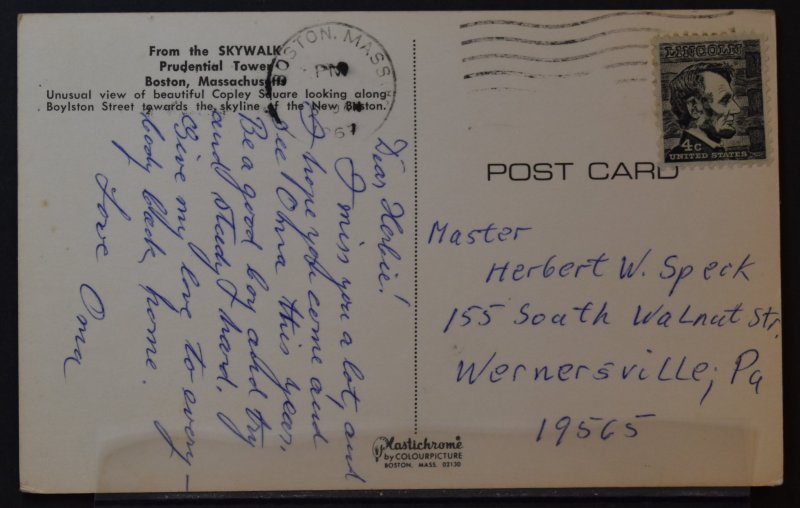 From the SKYWALK
Prudential Tower
Boston, Massachusetts
Unusual view of beautiful Copley Square looking along
Boylston Street towards the skyline of the New Boston.
BOSTON, MASS
PM
1967
LINCOLN
4c
UNITED STATES
POST CARD
Dear Herbie!
I miss you a lot, and
I hope you come and
see Oma this year.
Be a good boy and try
and study hard.
Give my love to every-
body back home.
Love Oma
Master
Herbert W. Speck
155 South Walnut Str.
Wernersville, Pa
19565
Plastichrome
by COLOURPICTURE
BOSTON, MASS. 02130